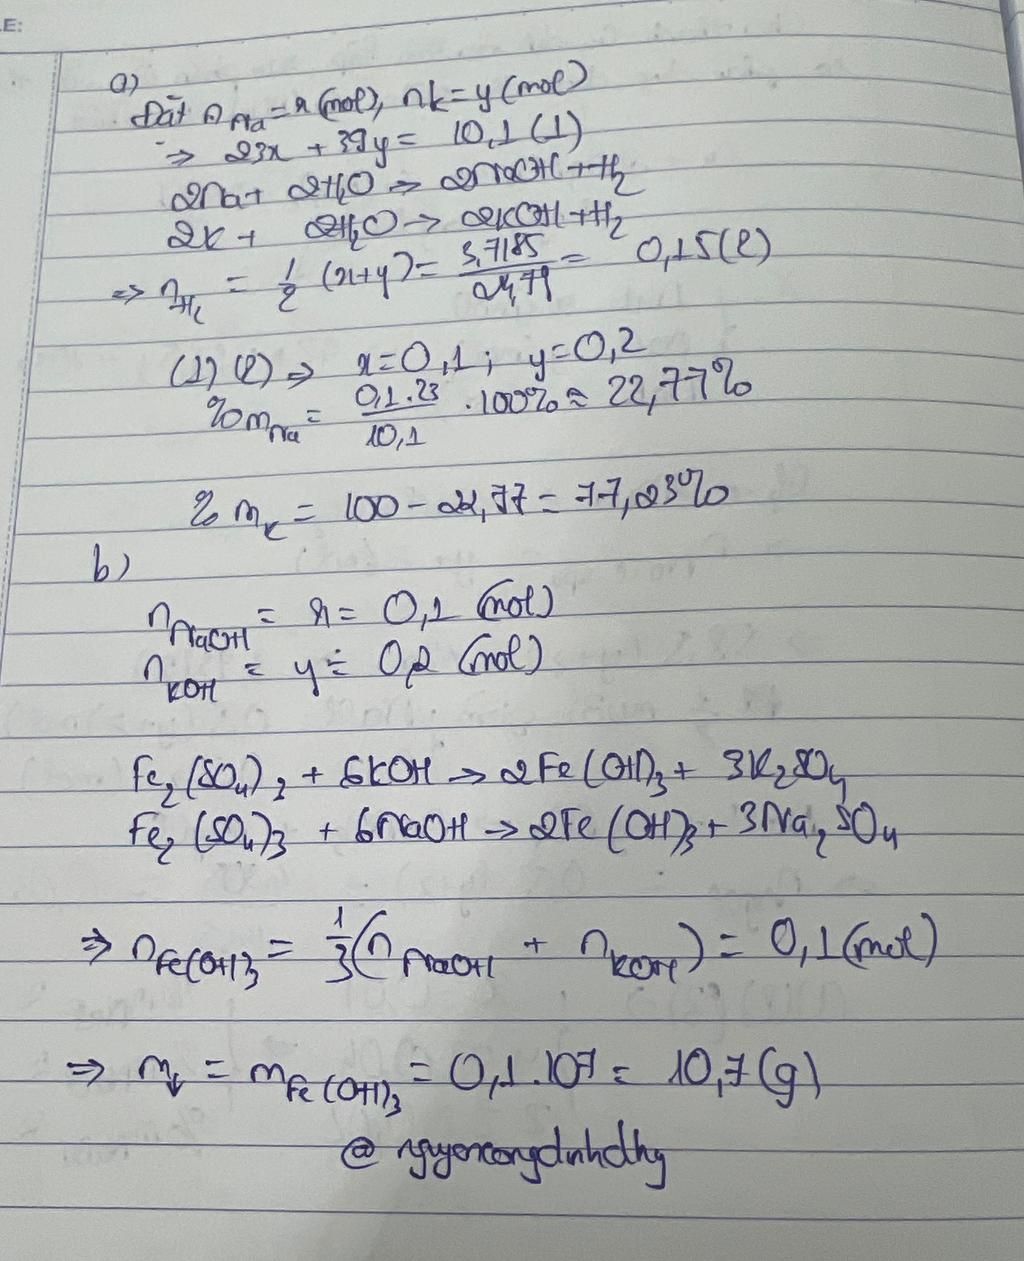 E:
a)
Đặt nNa = x (mol), nk = y (mol)
=> 23x + 39y = 10,1 (1)
2Na + 2H₂O → 2NaOH + H₂
2K + 2H₂O → 2KOH + H₂
=> nH₂ = 1/2 (x+y) = 3,7185/24,79 = 0,15 (2)
(1) (2) => x = 0,1 ; y = 0,2
%mNa = 0,1.23/10,1 .100% ≈ 22,77%
% mK = 100 - 22,77 = 77,23%
b)
nNaOH = x = 0,1 (mol)
nKOH = y = 0,2 (mol)
Fe₂(SO₄)₃ + 6KOH → 2Fe(OH)₃ + 3K₂SO₄
Fe₂(SO₄)₃ + 6NaOH → 2Fe(OH)₃ + 3Na₂SO₄
=> nFe(OH)₃ = 1/3 (nNaOH + nKOH) = 0,1 (mol)
=> m↓ = mFe(OH)₃ = 0,1.107 = 10,7 (g)